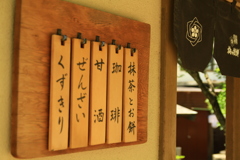 抹茶とお餅
珈琲
甘酒
ぜんざい
くずきり